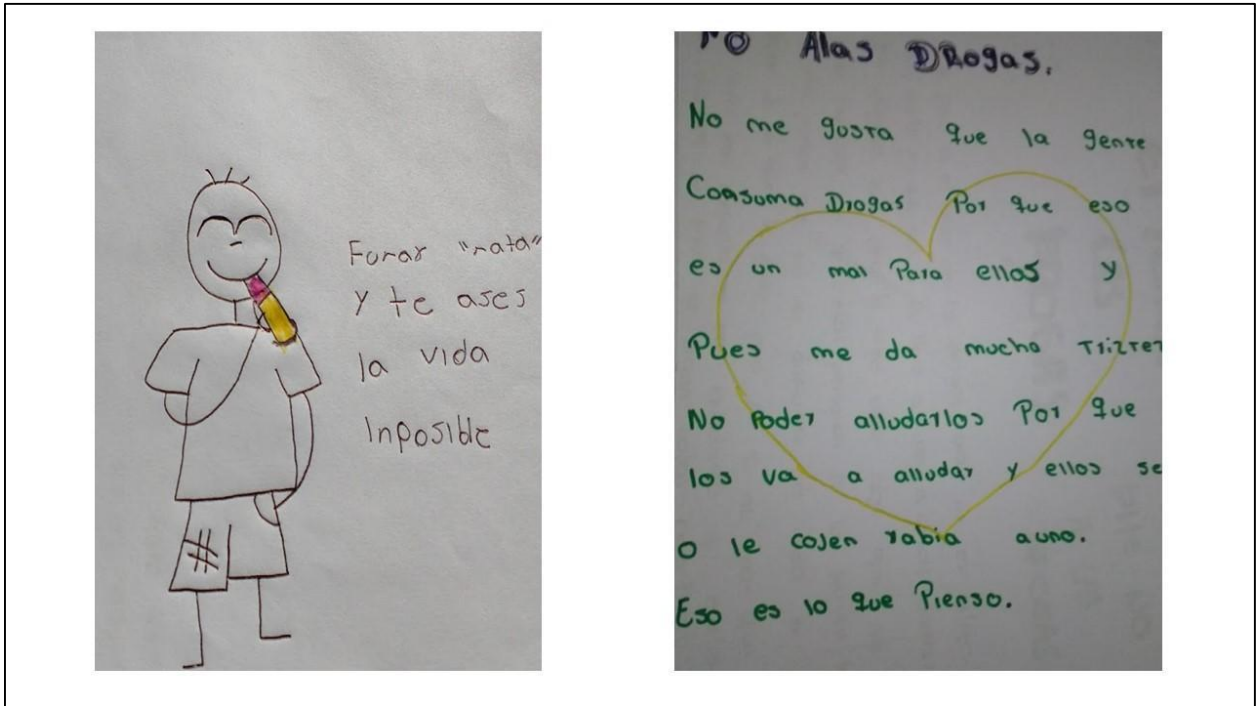 Fumar "nata"
y te ases
la vida
inposible
NO Alas DRogas.
No me gusta que la gente
Consuma Drogas Por que eso
es un mal Para ellas y
Pues me da mucha
No Poder alludarlos Por que
los va a alludar y ellos se
o le cojen rabia auno.
Eso es lo que Pienso.